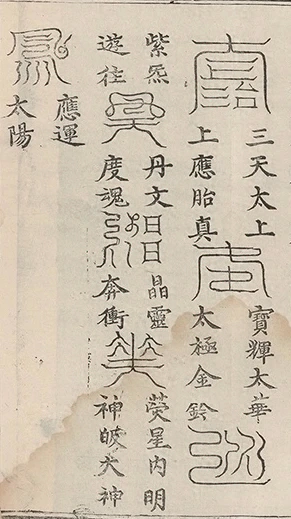 三天太上
上應胎真
寶輝太華
太極金鈴
紫炁
遊往
丹文
度魂
晶靈
奔衝
熒星內明
神失神
應運
太陽